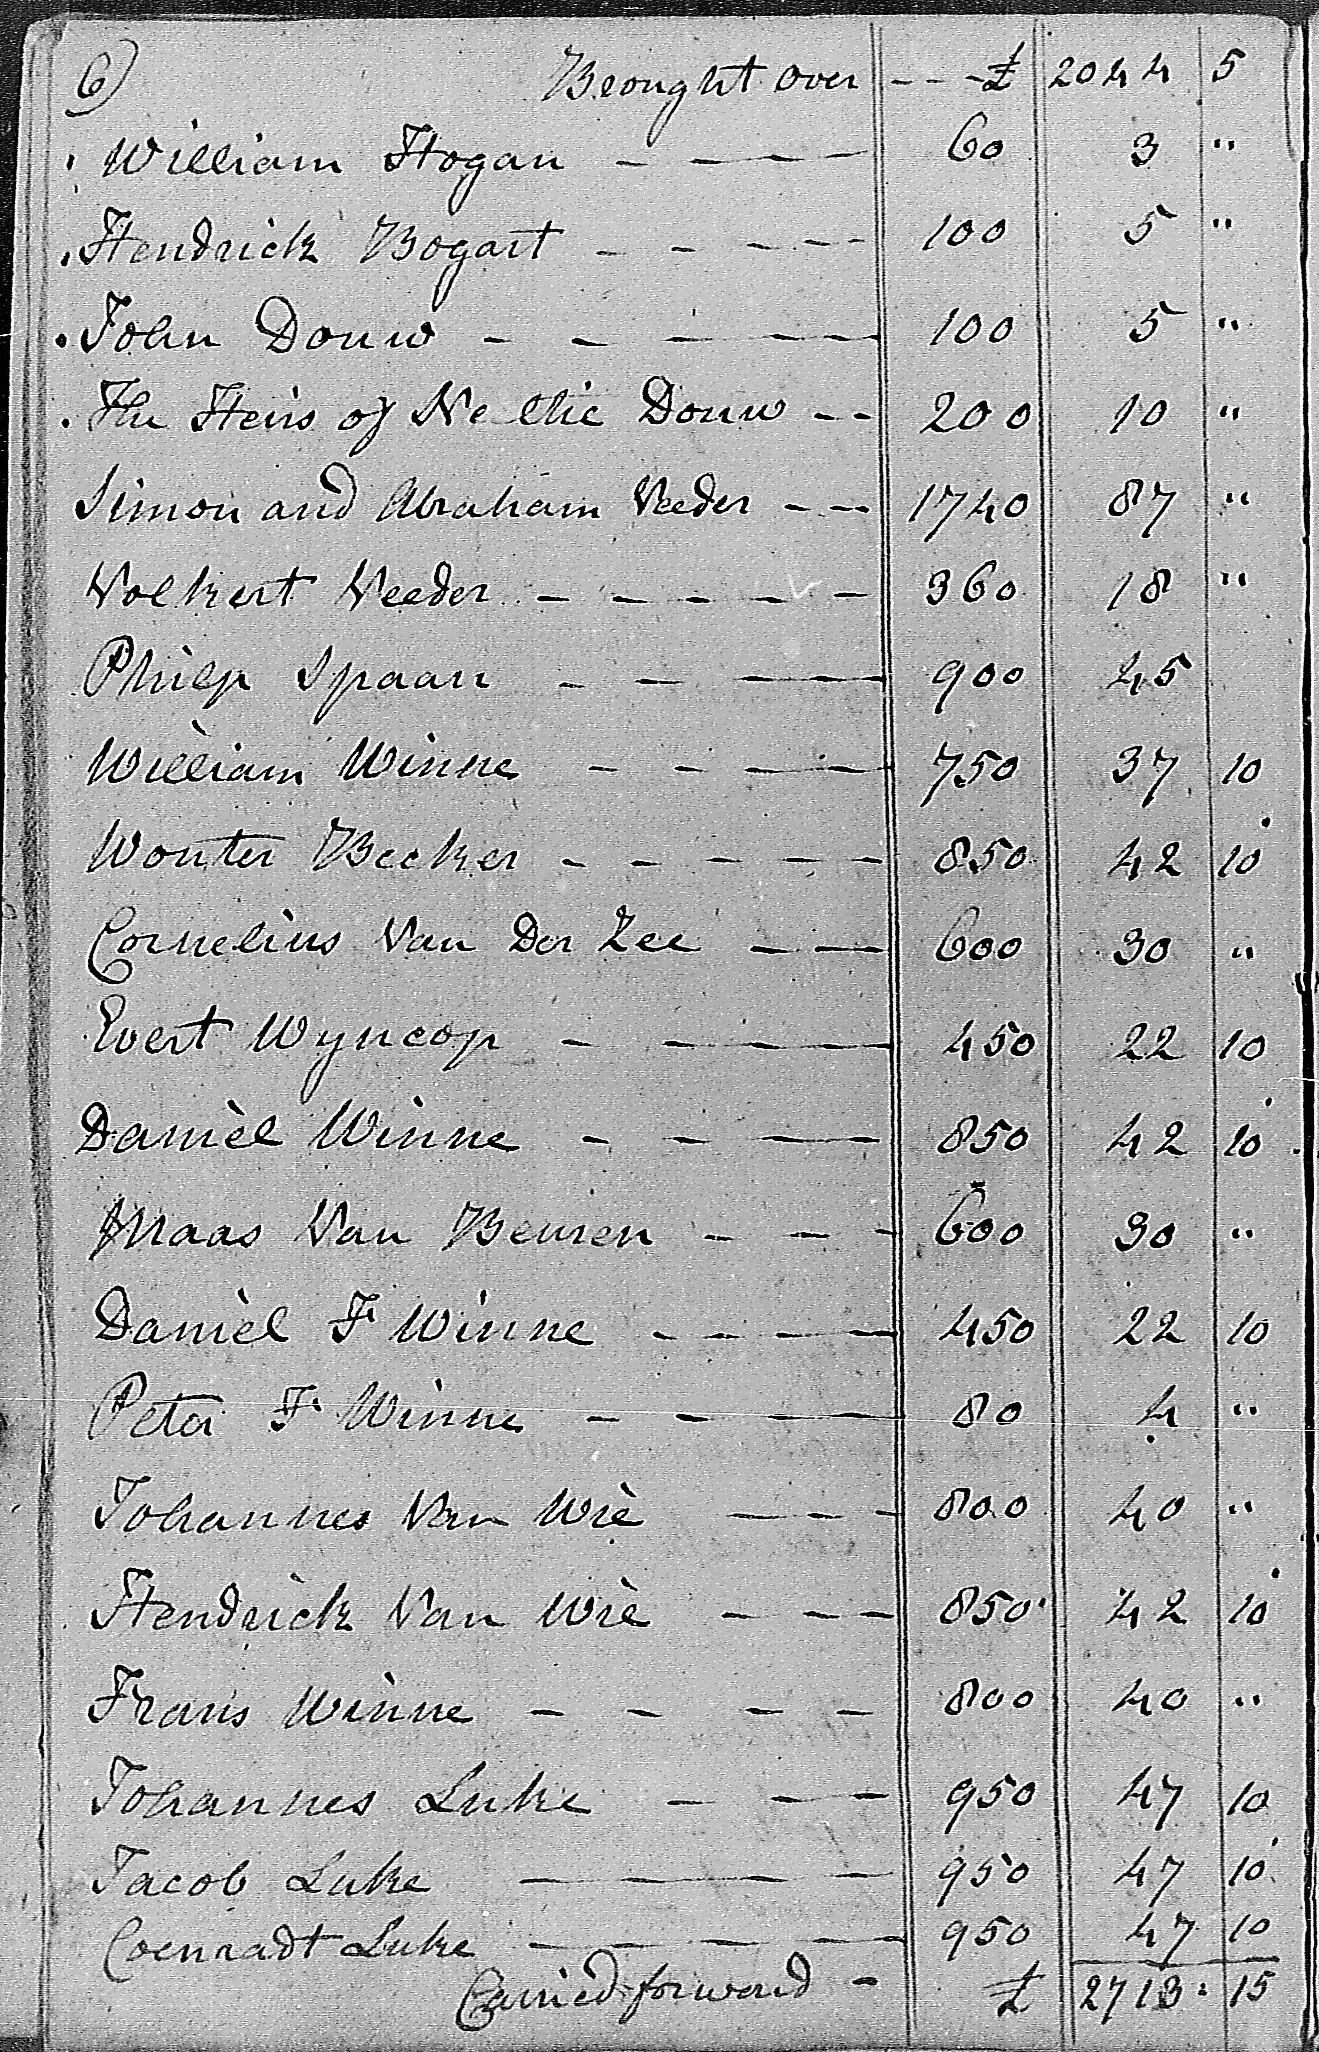 6) Brought over - - - £ 2044 5
William Hogan - - - - 60 3 "
Hendrick Bogart - - - - - 100 5 "
John Douw - - - - 100 5 "
The Heirs of Nellie Douw - - 200 10 "
Simon and Abraham Veeder - - - 1740 87 "
Volkert Veeder - - - - - 360 18 "
Philip Spaan - - - - 900 45
William Winne - - - - 750 37 10
Wouter Becker - - - - - 850 42 10
Cornelius Van Der Zee - - 600 30 "
Evert Wyncop - - - - 450 22 10
Daniel Winne - - - - 850 42 10
Maas Van Beuren - - - 600 30 "
Daniel F Winne - - - - 450 22 10
Peter F Winne - - - - 80 4 "
Johannes Van Wie - - - 800 40 "
Hendrick Van Wie - - - 850 42 10
Frans Winne - - - - 800 40 "
Johannes Luke - - - 950 47 10
Jacob Luke - - - - 950 47 10
Coenradt Luke - - - - 950 47 10
Carried forword - £ 2713 : 15